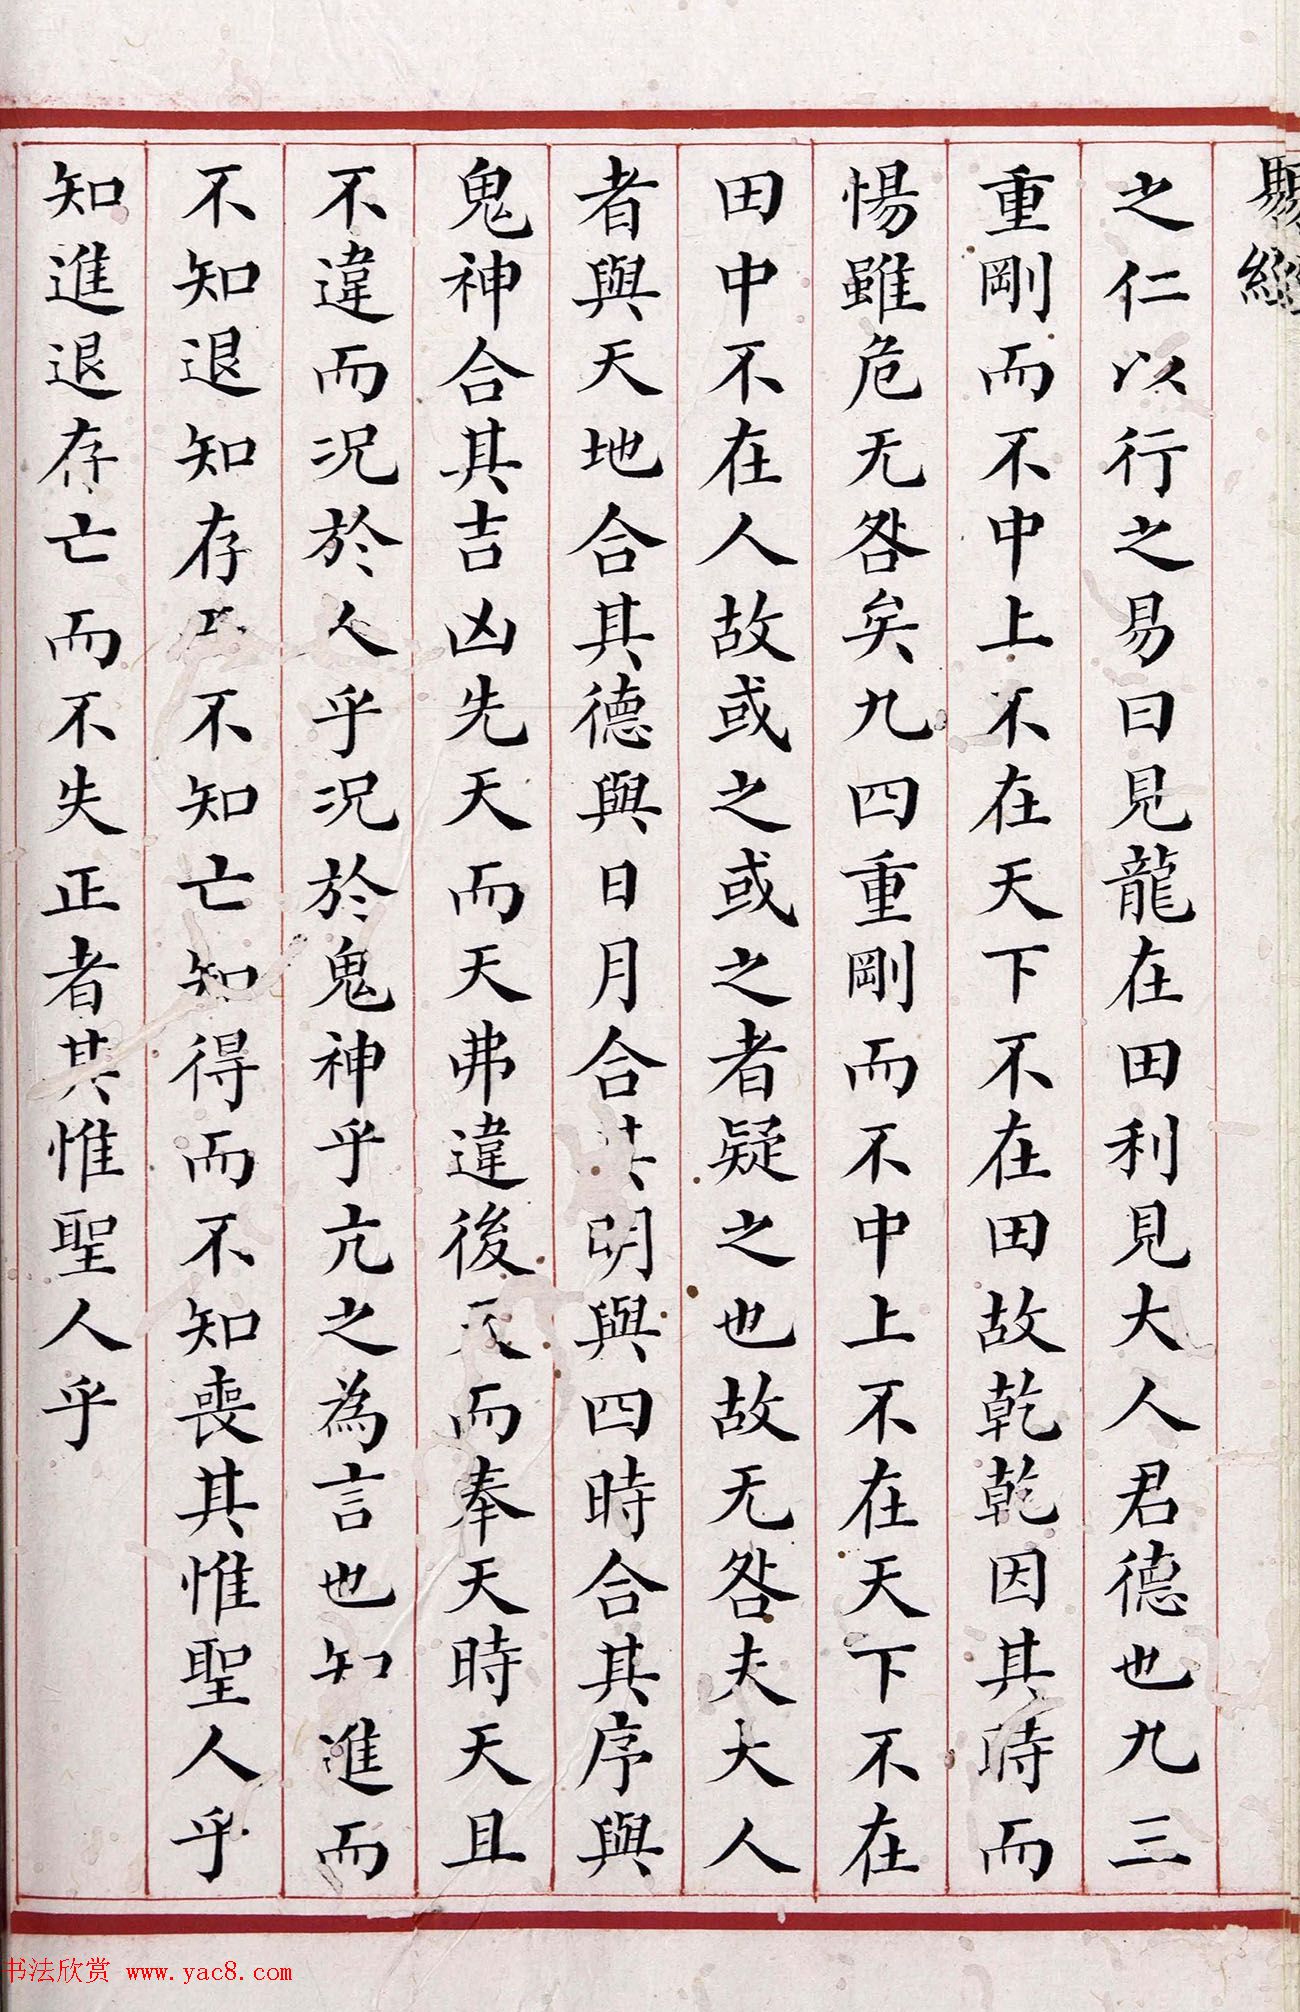 經
之仁以行之易曰見龍在田利見大人君德也九三
重剛而不中上不在天下不在田故乾乾因其時而
惕雖危无咎矣九四重剛而不中上不在天下不在
田中不在人故或之或之者疑之也故无咎夫大人
者與天地合其德與日月合其明與四時合其序與
鬼神合其吉凶先天而天弗違後天而奉天時天且
不違而況於人乎況於鬼神乎亢之為言也知進而
不知退知存不知亡知得而不知喪其惟聖人乎
知進退存亡而不失正者其惟聖人乎
书法欣赏 www.yac8.com